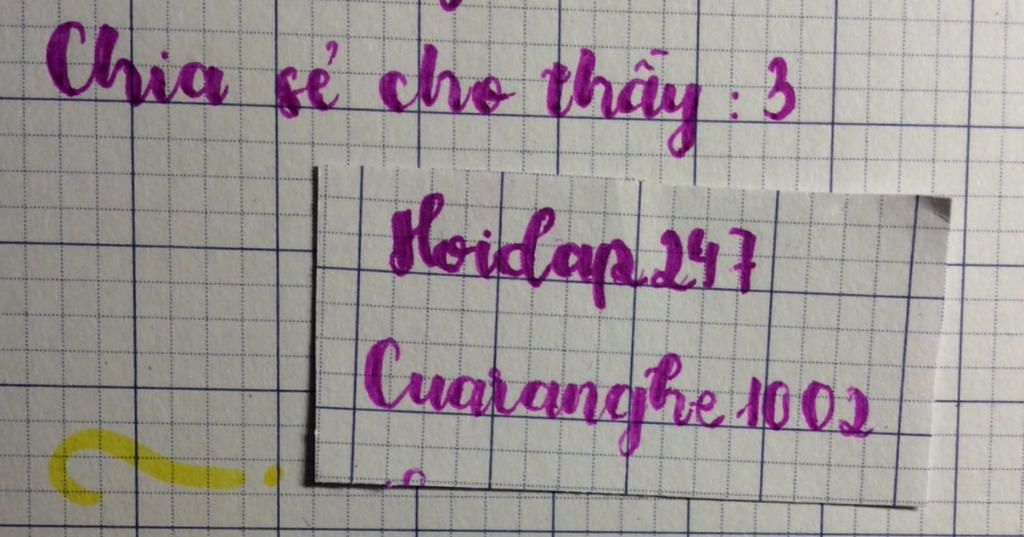 Chia sẻ cho thầy : 3
Hoidap247
Cuaranghe1002